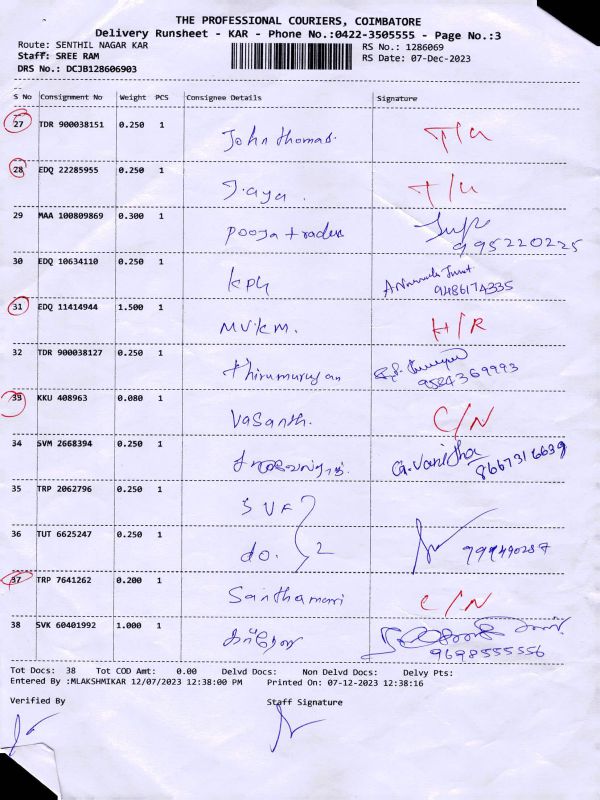 THE PROFESSIONAL COURIERS, COIMBATORE
Delivery Runsheet - KAR - Phone No.:0422-3505555 - Page No.:3
Route: SENTHIL NAGAR KAR RS No.: 1286069
Staff: SREE RAM RS Date: 07-Dec-2023
DRS No.: DCJB128606903
S No Consignment No Weight PCS Consignee Details Signature
27 TDR 900038151 0.250 1 John thomas. T/U
28 EDQ 22285955 0.250 1 Jaya. T/U
29 MAA 100809869 0.300 1 pooja traders 995220225
30 EDQ 10634110 0.250 1 KPG
9486174335
31 EDQ 11414944 1.500 1 MVKM. H/R
32 TDR 900038127 0.250 1 thirumurugan
9524369993
33 KKU 408963 0.080 1 Vasanth. C/N
34 SVM 2668394 0.250 1 G. Vanitha
8667316639
35 TRP 2062796 0.250 1 SVF
36 TUT 6625247 0.250 1 do. 2
37 TRP 7641262 0.200 1 Santhamani C/N
38 SVK 60401992 1.000 1
9698555556
Tot Docs: 38 Tot COD Amt: 0.00 Delvd Docs: Non Delvd Docs: Delvy Pts:
Entered By :MLAKSHMIKAR 12/07/2023 12:38:00 PM Printed On: 07-12-2023 12:38:16
Verified By Staff Signature